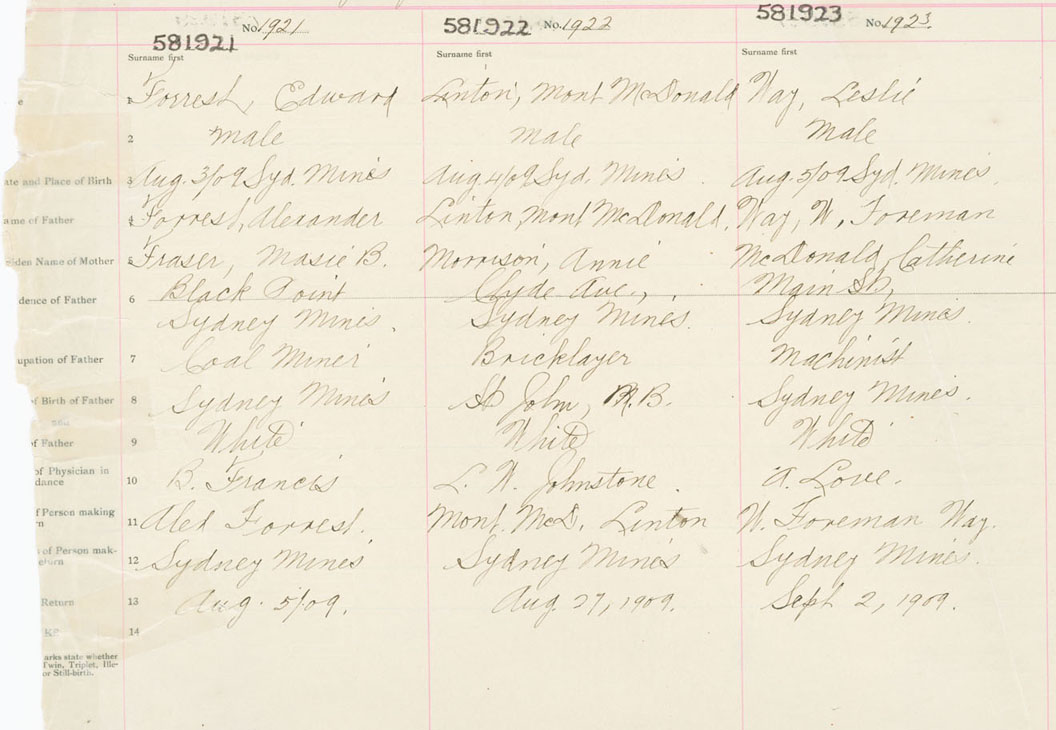 No. 1921 581922 No. 1922 581923 No. 1923
581921
Surname first Surname first Surname first
e 1 Forrest, Edward Linton, Mont McDonald Way, Leslie
2 male male male
ate and Place of Birth 3 Aug. 3/09 Syd. Mines Aug 4/09 Syd. Mines Aug 5/09 Syd. Mines.
ame of Father 4 Forrest, Alexander Linton, Mont McDonald. Way, W. Foreman
iden Name of Mother 5 Fraser, Masie B. Morrison, Annie McDonald, Catherine
dence of Father 6 Black Point Clyde Ave., Main St,
Sydney Mines. Sydney Mines. Sydney Mines
upation of Father 7 Coal Miner Bricklayer Machinist
of Birth of Father 8 Sydney Mines St John, N.B. Sydney Mines.
of Father 9 White White White
of Physician in
dance 10 B. Francis L. W. Johnstone. A. Love.
f Person making
n 11 Alex Forrest. Mont. McD. Linton W. Foreman Way.
of Person mak-
eturn 12 Sydney Mines Sydney Mines Sydney Mines.
Return 13 Aug. 5/09. Aug. 27, 1909. Sept 2, 1909.
KS 14
arks state whether
Twin, Triplet, Ille-
or Still-birth.